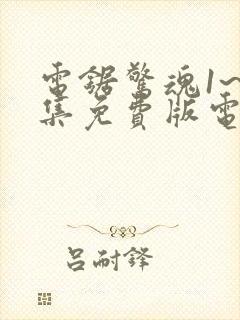 電鋸驚魂1~
集免費版電
呂耐鋒